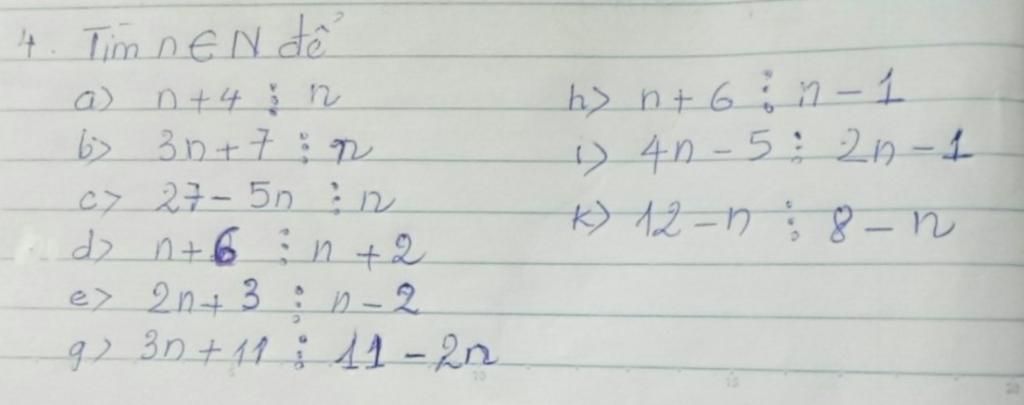 4. Tìm n ∈ N để
a> n + 4 ⋮ n
b> 3n + 7 ⋮ n
c> 27 - 5n ⋮ n
d> n + 6 ⋮ n + 2
e> 2n + 3 ⋮ n - 2
g> 3n + 11 ⋮ 11 - 2n
h> n + 6 ⋮ n - 1
i> 4n - 5 ⋮ 2n - 1
k> 12 - n ⋮ 8 - n
5 10 15 20